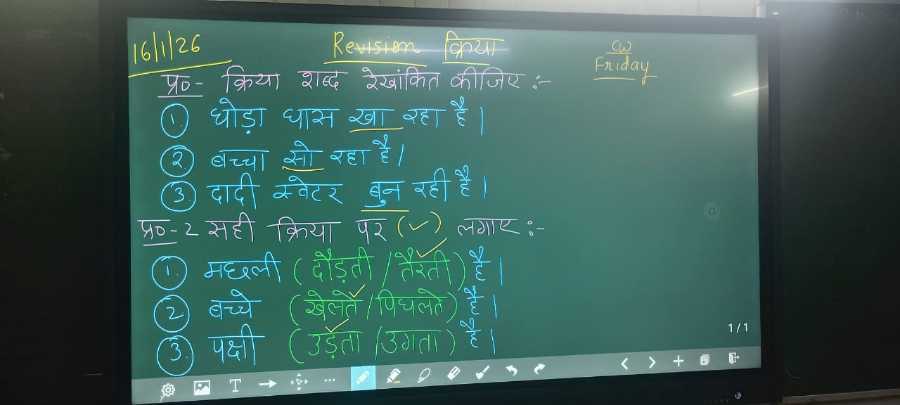 16/1/26 Revision क्रिया CW
Friday
प्र०- क्रिया शब्द रेखांकित कीजिए :-
① घोड़ा घास खा रहा है।
② बच्चा सो रहा है।
③. दादी स्वेटर बुन रही है।
प्र०-2 सही क्रिया पर (✓) लगाए :-
①. मछली (दौड़ती / तैरती) है।
② बच्चे (खेलते / पिघलते) है।
③. पक्षी (उड़ता / उगता) है।
1/1
T